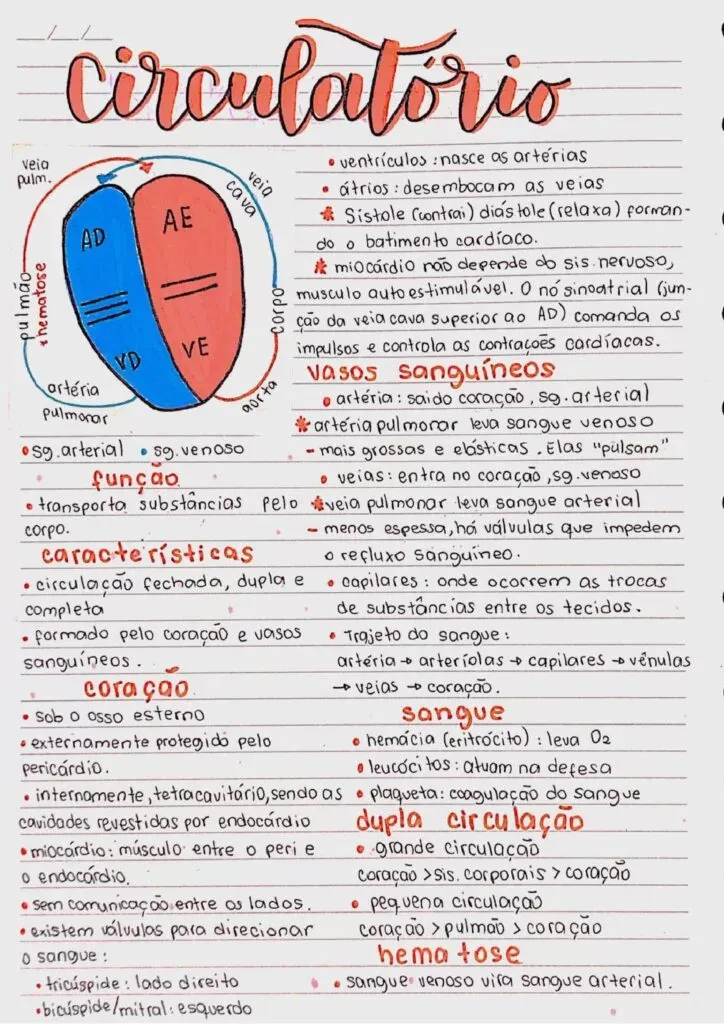 __/__/__
circulatório
veia
pulm.
veia
cava
AD
AE
VD
VE
pulmão
hematose
corpo
artéria
pulmonar
aorta
• sg. arterial • sg. venoso
função
• transporta substâncias pelo
corpo.
características
• circulação fechada, dupla e
completa
• formado pelo coração e vasos
sanguíneos.
coração
• sob o osso esterno
• externamente protegido pelo
pericárdio.
• internamente, tetracavitário, sendo as
cavidades revestidas por endocárdio
• miocárdio: músculo entre o peri e
o endocárdio.
• sem comunicação entre os lados.
• existem válvulas para direcionar
o sangue:
• tricúspide: lado direito
• bicúspide/mitral: esquerdo
• ventrículos: nasce as artérias
• átrios: desembocam as veias
* Sístole (contrai) diástole (relaxa) forman-
do o batimento cardíaco.
* miocárdio não depende do sis. nervoso,
musculo autoestimulável. O nó sinoatrial (jun-
ção da veia cava superior ao AD) comanda os
impulsos e controla as contrações cardíacas.
vasos sanguíneos
• artéria: sai do coração, sg. arterial
* artéria pulmonar leva sangue venoso
- mais grossas e elásticas. Elas "pulsam"
• veias: entra no coração, sg. venoso
* veia pulmonar leva sangue arterial
- menos espessa, há válvulas que impedem
o refluxo sanguíneo.
• capilares: onde ocorrem as trocas
de substâncias entre os tecidos.
• Trajeto do sangue:
artéria → arteríolas → capilares → vênulas
→ veias → coração.
sangue
• hemácia (eritrócito): leva O2
• leucócitos: atuam na defesa
• plaqueta: coagulação do sangue
dupla circulação
• grande circulação
coração > sis. corporais > coração
• pequena circulação
coração > pulmão > coração
hematose
• sangue venoso vira sangue arterial.